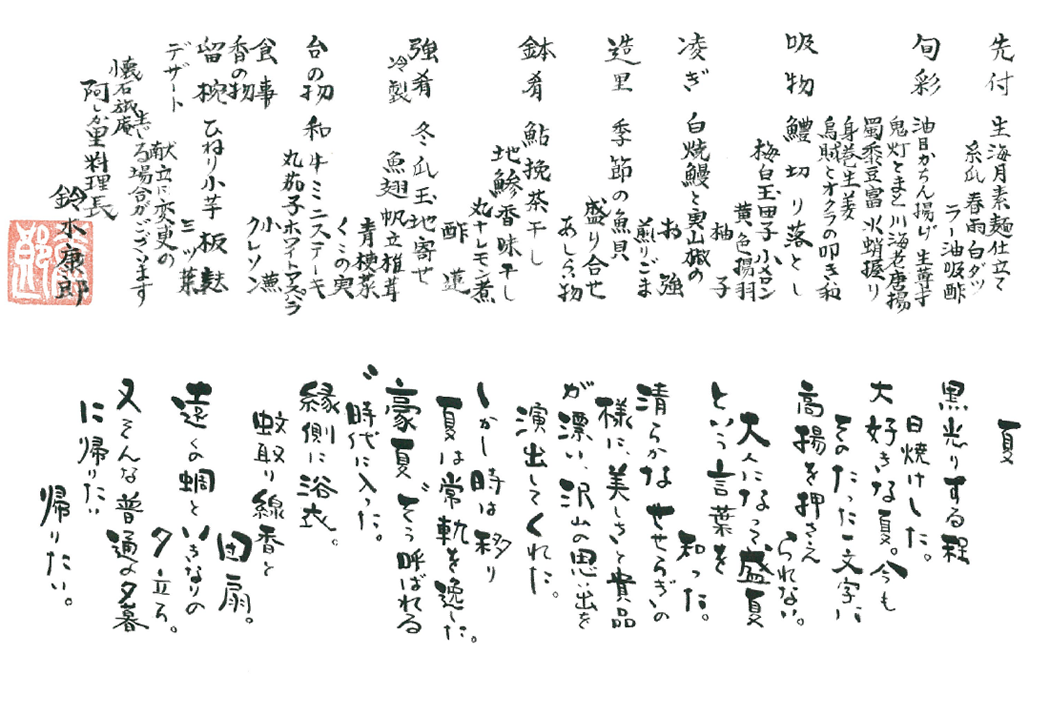 先付 生海月素麺仕立て
糸瓜 春雨 白ダツ
ラー油吸酢
旬彩 油目かちん揚げ 生芋
鬼灯とまと 川海老唐揚
蜀黍豆富 水蛸握り
身巻生姜
烏賊とオクラの叩き和
吸物 鱧切り落とし
梅白玉団子 小メロン
黄色揚羽
柚子
凌ぎ 白焼鰻と実山椒の
お強
煎りごま
造里 季節の魚貝
盛り合せ
あしらい物
鉢肴 鮎挽茶干し
地鯵香味干し
丸十レモン煮
強肴 冬瓜玉地寄せ
冷製 魚翅 帆立 雑茸
酢造
青梗菜
くこの実
台の物 和牛ミニステーキ
丸茄子 ホワイトアスパラ
小蕪
クレソン
食事
香の物
留椀 ひねり小芋 板麩
三ッ葉
デザート
献立に変更の
生じる場合がございます
懐石旅庵
阿しか里 料理長
鈴木康郎
夏
黒光りする程
日焼けした。
大好きな夏。今も
そのたった一文字に
高揚を押さえ
られない。
大人になって盛夏
という言葉を
和った。
清らかなせせらぎの
様に、美しさと貴品
が漂い、沢山の思い出を
演出してくれた。
しかし時は移り
夏は常軌を逸した。
豪夏、そう呼ばれる
時代に入った。
縁側に浴衣。
蚊取り線香と
団扇。
遠くの蜩と
いきなりの
夕立ち。
又そんな普通の夕暮
に帰りたい
帰りたい。